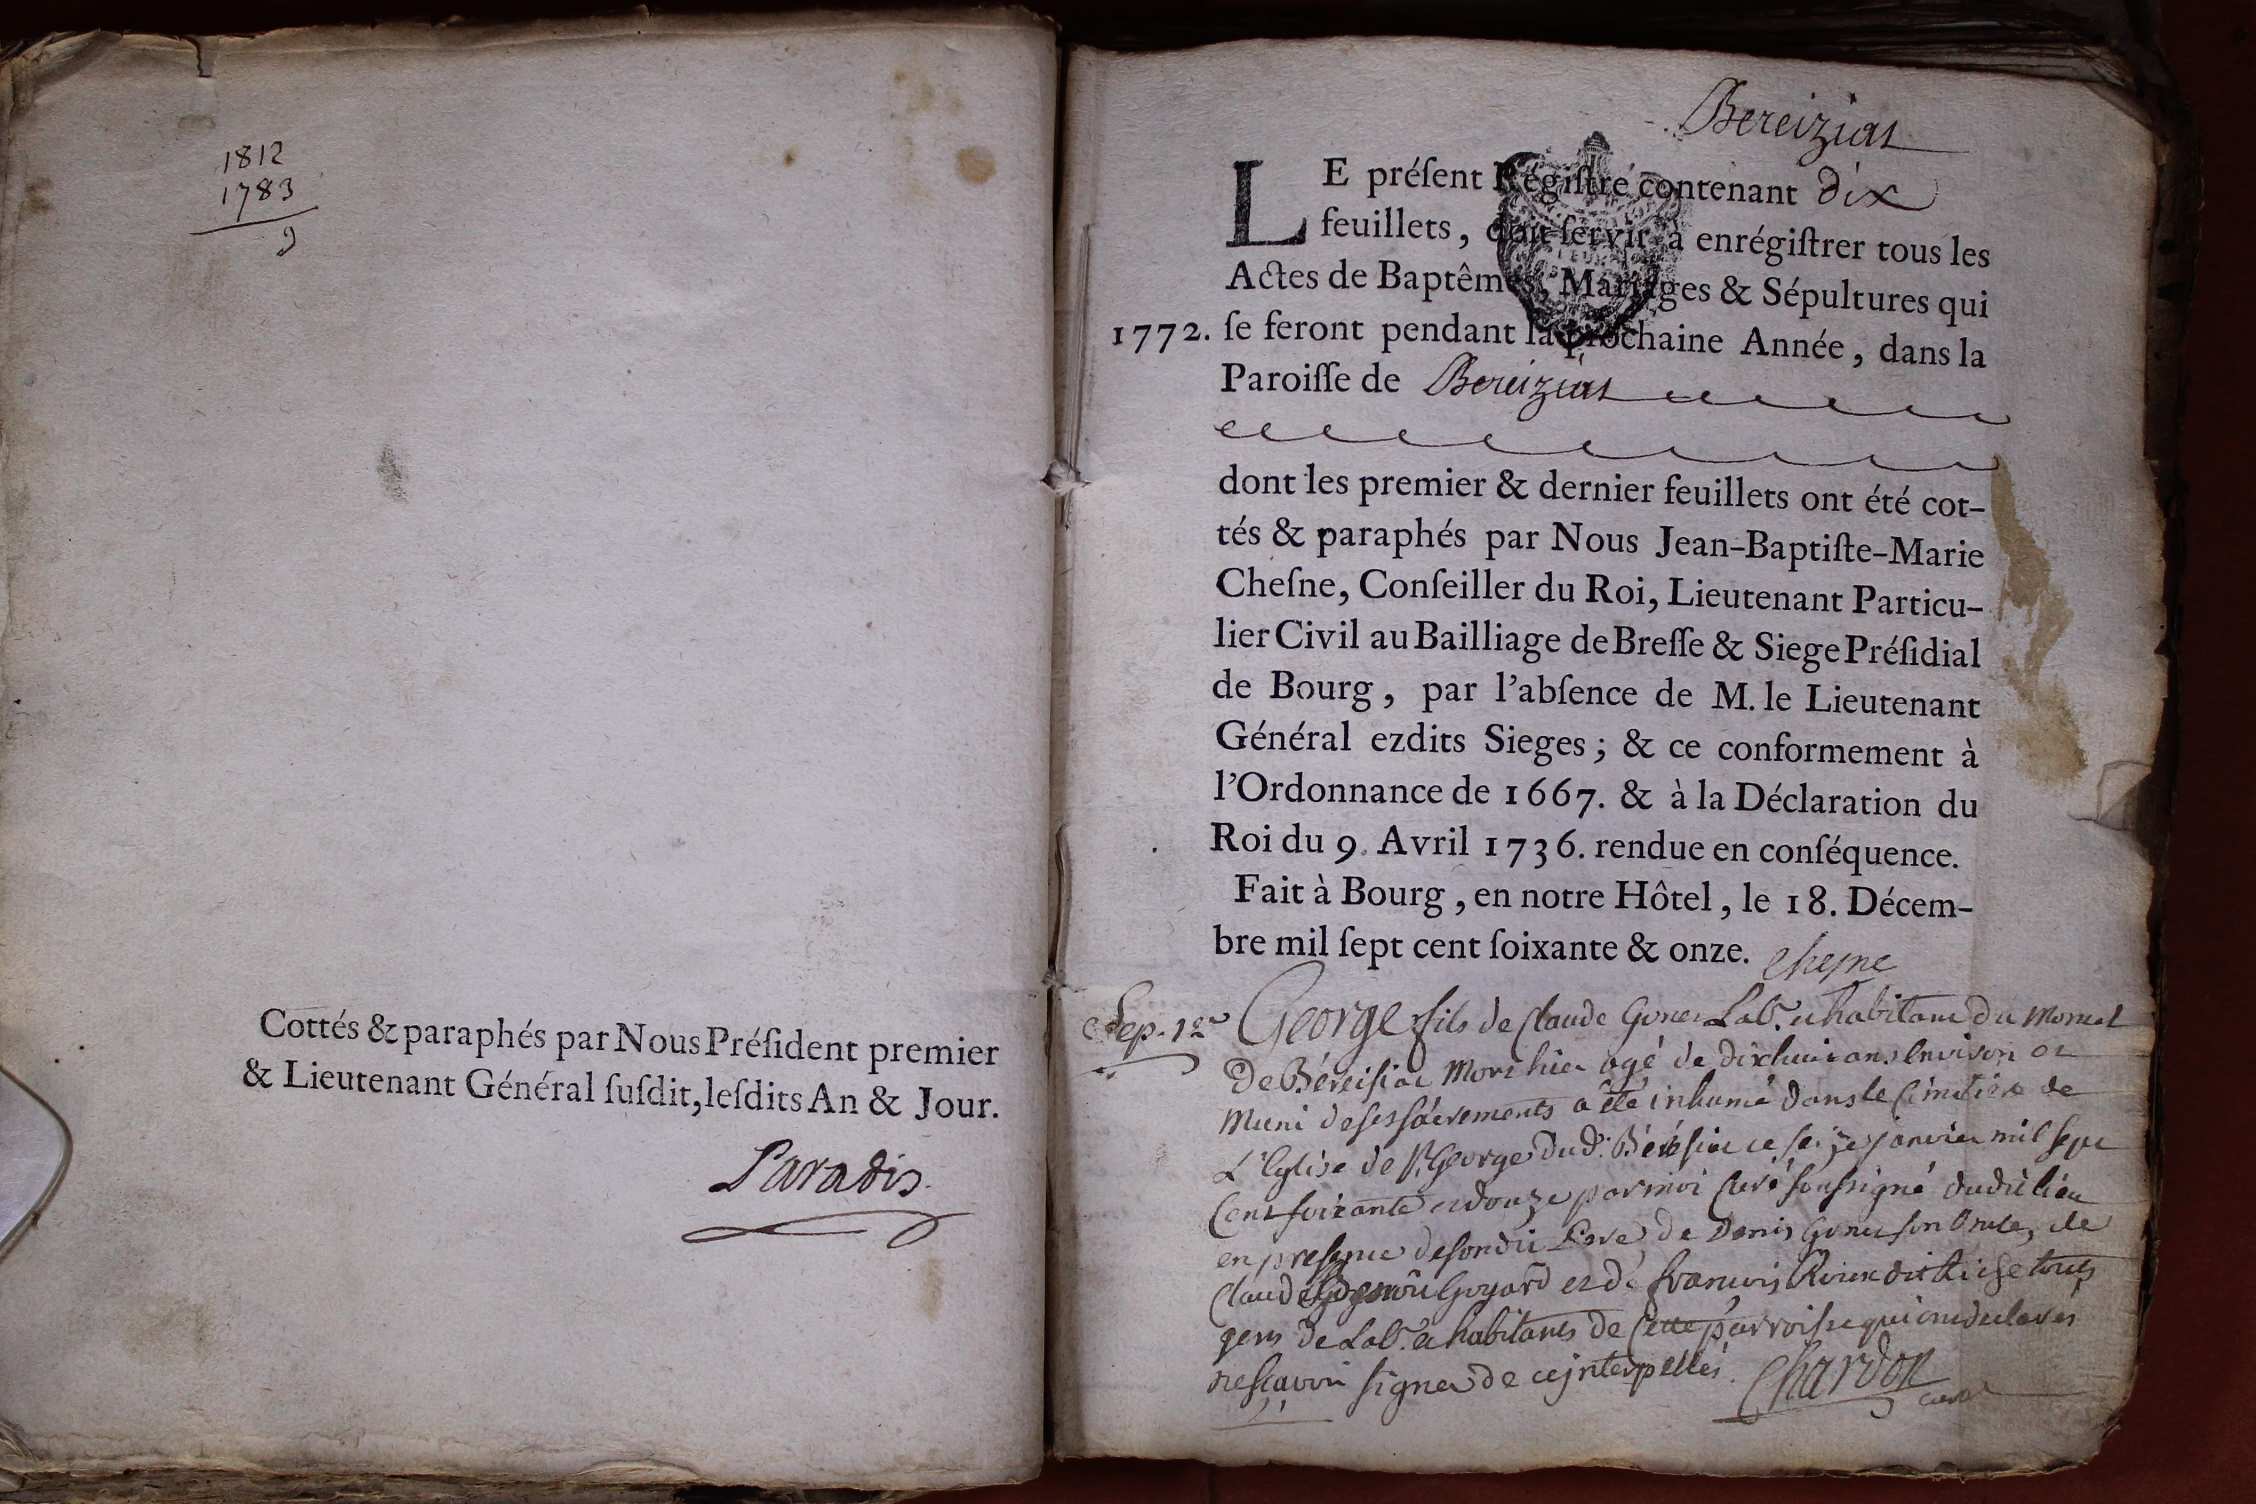 1812
1783
9
Cottés & paraphés par Nous Préſident premier
& Lieutenant Général ſuſdit, leſdits An & Jour.
Paradis
Bereiziat
LE préſent Régiſtre contenant dix
feuillets, doit ſervir à enrégiſtrer tous les
Actes de Baptêmes, Mariages & Sépultures qui
1772. ſe feront pendant la prochaine Année, dans la
Paroiſſe de Bereiziat
dont les premier & dernier feuillets ont été cot-
tés & paraphés par Nous Jean-Baptiſte-Marie
Cheſne, Conſeiller du Roi, Lieutenant Particu-
lier Civil au Bailliage de Breſſe & Siege Préſidial
de Bourg, par l'abſence de M. le Lieutenant
Général ezdits Sieges; & ce conformement à
l'Ordonnance de 1667. & à la Déclaration du
Roi du 9. Avril 1736. rendue en conſéquence.
Fait à Bourg, en notre Hôtel, le 18. Décem-
bre mil ſept cent ſoixante & onze. Chesne
Sep. 1er George fils de Claude Lab. et habitant du
De Béreisiat Mort hier agé de dixhuit ans environ et
Muni de ses sacrements a été inhumé dans le Cimetiere de
L'Eglise de St George dud. Béreisiat ce seize janvier mil sept
Cent soixante et douze par moi Curé soussigné dudit lieu
en presence de sondit Pere de Denis son oncle, de
Claude Goyard et de francois tous
gens de Lab. et habitants de Cette parroisse qui ont declarés
ne scavoir signer de ce interpellés. Chardon
curé